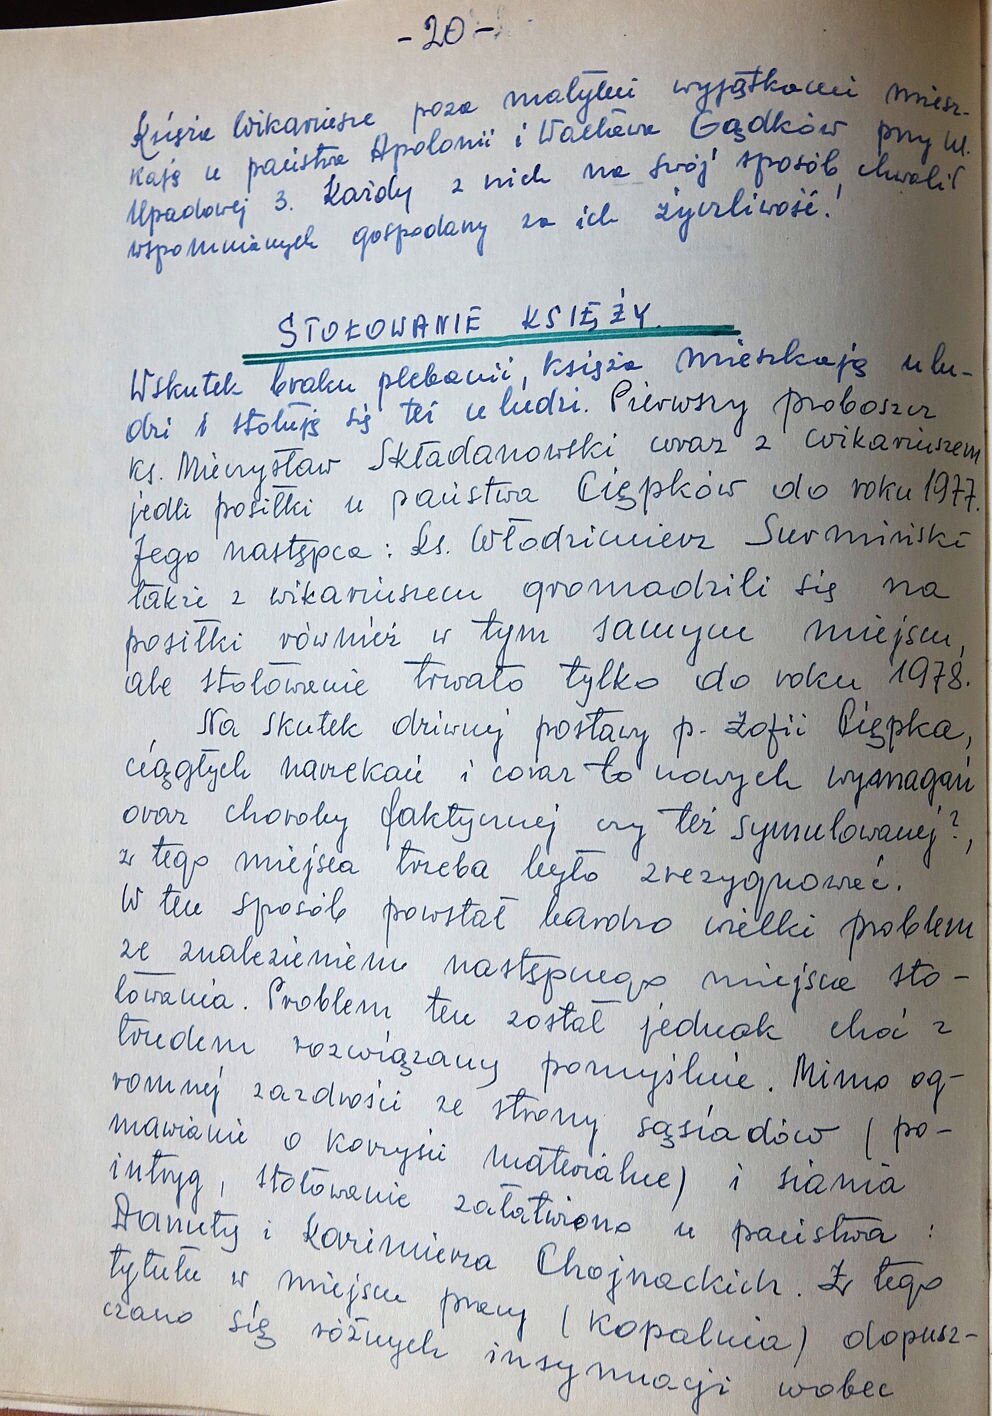 - 20 -
Księża Wikariusze poza małymi wyjątkami miesz-
kają u państwa Apolonii i Wacława Gądków przy ul.
Upadowej 3. Każdy z nich na swój sposób chwalił
wspomnianych gospodarzy za ich życzliwość!
STOŁOWANIE KSIĘŻY
Wskutek braku plebanii, księża mieszkają u lu-
dzi i stołują się też u ludzi. Pierwszy proboszcz
ks. Mieczysław Składanowski wraz z wikariuszem
jedli posiłki u państwa Ciępków do roku 1977.
Jego następca: ks. Włodzimierz Surmiński
także z wikariuszem gromadzili się na
posiłki również w tym samym miejscu,
ale stołowanie trwało tylko do roku 1978.
Na skutek dziwnej postawy p. Zofii Ciępka,
ciągłych narzekań i coraz to nowych wymagań
oraz choroby faktycznej czy też symulowanej?,
z tego miejsca trzeba było zrezygnować.
W ten sposób powstał bardzo wielki problem
ze znalezieniem następnego miejsca sto-
łowania. Problem ten został jednak choć z
trudem rozwiązany pomyślnie. Mimo og-
romnej zazdrości ze strony sąsiadów (po-
mawianie o korzyści materialne) i siania
intryg, stołowanie załatwiono u państwa:
Danuty i Kazimierza Chojnackich. Z tego
tytułu w miejscu pracy (kopalnia) dopusz-
czano się różnych insynuacji wobec